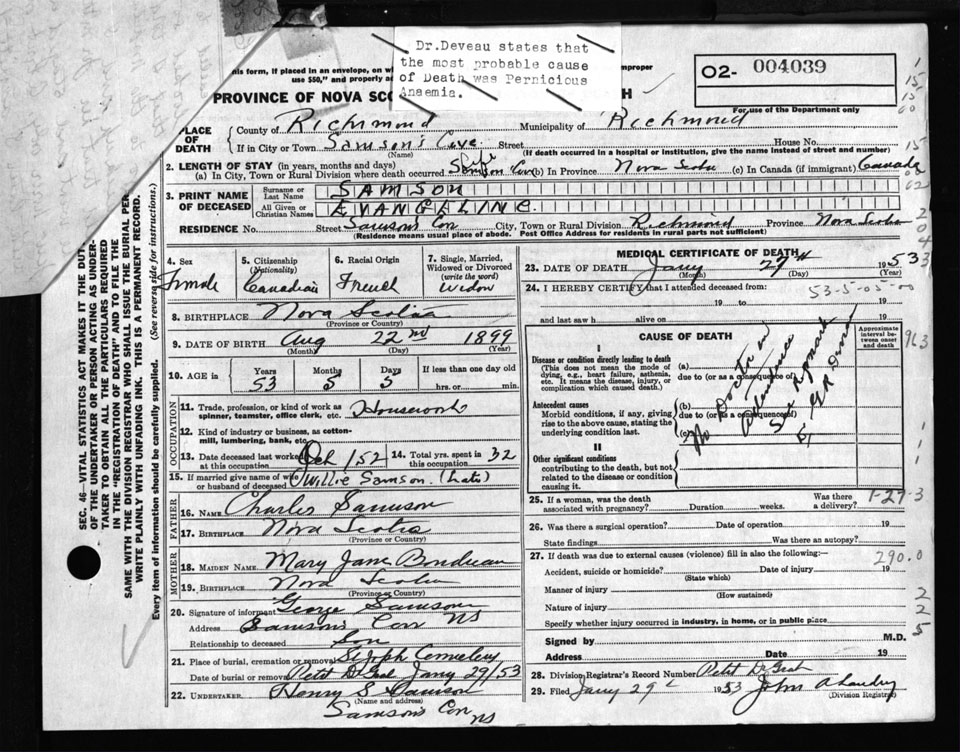 Dr.Deveau states that
the most probable cause
of Death was Pernicious
Anaemia.
02- 004039
For use of the Department only
his form, if placed in an envelope, on
improper
use $50," and property
PROVINCE OF NOVA SCO
H
PLACE OF DEATH
County of Richmond Municipality of Richmond
If in City or Town Samson's Cove Street House No.
(Name) (If death occurred in a hospital or institution, give the name instead of street and number)
2. LENGTH OF STAY (in years, months and days) Life
(a) In City, Town or Rural Division where death occurred Samson Cov (b) In Province Nova Scotia (c) In Canada (if immigrant) Canada
3. PRINT NAME OF DECEASED
Surname or Last Name SAMSON
All Given or Christian Names EVANGELINE.
RESIDENCE No. Street Samson's Cov City, Town or Rural Division Richmond Province Nova Scotia
(Residence means usual place of abode. Post Office Address for residents in rural parts not sufficient)
4. Sex Female
5. Citizenship (Nationality) Canadian
6. Racial Origin French
7. Single, Married, Widowed or Divorced (write the word) Widow
8. BIRTHPLACE Nova Scotia
(Province or Country)
9. DATE OF BIRTH Aug 22nd 1899
(Month) (Day) (Year)
10. AGE in Years 53 Months 5 Days 5 If less than one day old hrs. or min.
OCCUPATION
11. Trade, profession, or kind of work as spinner, teamster, office clerk, etc. Housework
12. Kind of industry or business, as cotton-mill, lumbering, bank, etc.
13. Date deceased last worked at this occupation Oct /52 14. Total yrs. spent in this occupation 32
15. If married give name of wife or husband of deceased Willie Samson (Late)
FATHER
16. NAME Charles Samson
17. BIRTHPLACE Nova Scotia
(Province or Country)
MOTHER
18. MAIDEN NAME Mary Jane
19. BIRTHPLACE Nova Scotia
(Province or Country)
20. Signature of informant George Samson
Address Samson's Cov NS
Relationship to deceased Son
21. Place of burial, cremation or removal St Jph Cemetery
Date of burial or removal Petit D Grat Jany 29/53
22. UNDERTAKER Henry S. Samson
(Name and address)
Samson's Cov NS
MEDICAL CERTIFICATE OF DEATH
23. DATE OF DEATH Jany 27th 1953
(Month) (Day) (Year)
24. I HEREBY CERTIFY that I attended deceased from:
53-5-05-00
19 to 19
and last saw h alive on 19
CAUSE OF DEATH
Approximate interval between onset and death
I
Disease or condition directly leading to death
(This does not mean the mode of dying, e.g., heart failure, asthenia, etc. It means the disease, injury, or complication which caused death.)
(a)
due to (or as a consequence of)
Antecedent causes
Morbid conditions, if any, giving rise to the above cause, stating the underlying condition last.
(b)
due to (or as a consequence of)
(c)
No Doctor in attendance
II
Other significant conditions
contributing to the death, but not related to the disease or condition causing it.
25. If a woman, was the death associated with pregnancy? Duration weeks. Was there a delivery?
1-27-3
26. Was there a surgical operation? Date of operation 19
State findings Was there an autopsy?
27. If death was due to external causes (violence) fill in also the following:—
290.0
Accident, suicide or homicide? Date of injury 19
(State which)
Manner of injury
(How sustained)
Nature of injury
Specify whether injury occurred in industry, in home, or in public place
Signed by M.D.
Address Date 19
28. Division Registrar's Record Number Petit D Grat
29. Filed Jany 29 1953 John A Landry
(Division Registrar)
SEC. 46—VITAL STATISTICS ACT MAKES IT THE DUTY
OF THE UNDERTAKER OR PERSON ACTING AS UNDER-
TAKER TO OBTAIN ALL THE PARTICULARS REQUIRED
IN THE "REGISTRATION OF DEATH" AND TO FILE THE
SAME WITH THE DIVISION REGISTRAR WHO SHALL ISSUE THE BURIAL PER
WRITE PLAINLY WITH UNFADING INK. THIS IS A PERMANENT RECORD.
Every item of information should be carefully supplied. (See reverse side for instructions.)